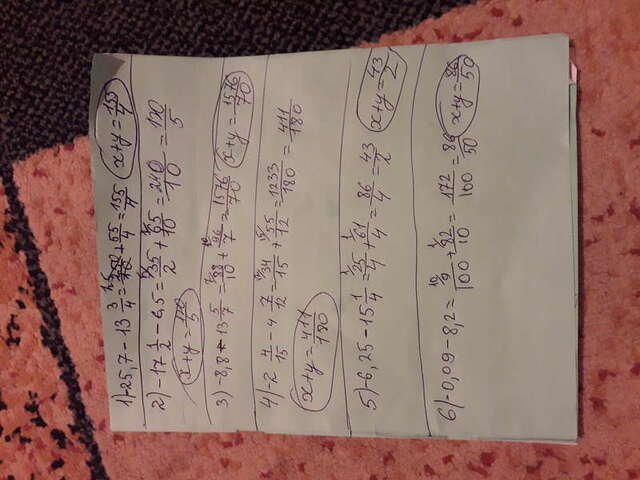 1) -25,7 - 13 3/4 = + 55/4 = 155/4 x+y = 155/4
2) -17 1/2 - 6,5 = 35/2 + 65/10 = 240/10 = 120/5
x+y = 120/5
3) -8,8 - 13 5/7 = 88/10 + 96/7 = 1576/70 x+y = 1576/70
4) -2 4/15 - 4 7/12 = 34/15 + 55/12 = 1233/180 = 411/180
x+y = 411/180
5) -6,25 - 15 1/4 = 25/4 + 61/4 = 86/4 = 43/2 x+y = 43/2
6) -0,09 - 8,2 = 9/100 + 82/10 = 172/100 = 86/50 x+y = 86/50